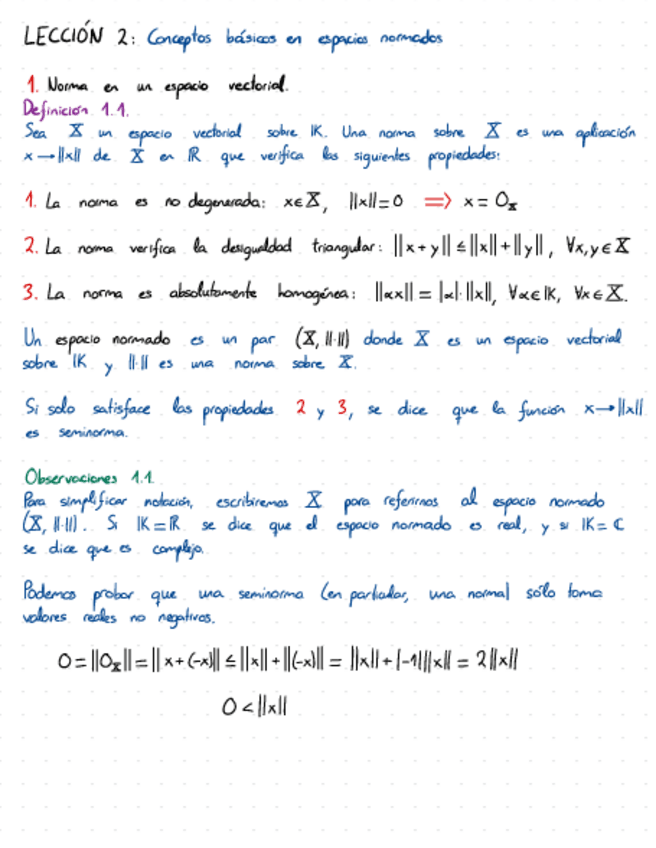 LECCIÓN 2: Conceptos básicos en espacios normados
1. Norma en un espacio vectorial.
Definición 1.1.
Sea X un espacio vectorial sobre IK. Una norma sobre X es una aplicación
x→||x|| de X en IR que verifica las siguientes propiedades:
1. La norma es no degenerada: x∈X, ||x||=0 ⟹ x = 0_X
2. La norma verifica la desigualdad triangular: ||x+y|| ≤ ||x||+||y||, ∀x,y∈X
3. La norma es absolutamente homogénea: ||αx|| = |α|·||x||, ∀α∈IK, ∀x∈X.
Un espacio normado es un par (X, ||·||) donde X es un espacio vectorial
sobre IK y ||·|| es una norma sobre X.
Si solo satisface las propiedades 2 y 3, se dice que la función x→||x||
es seminorma.
Observaciones 1.1
Para simplificar notación, escribiremos X para referirnos al espacio normado
(X, ||·||). Si IK=IR se dice que el espacio normado es real, y si IK=C
se dice que es complejo.
Podemos probar que una seminorma (en particular, una norma) sólo toma
valores reales no negativos.
0=||0_X||=||x+(-x)|| ≤ ||x||+||(-x)|| = ||x||+|-1|||x|| = 2||x||
0<||x||